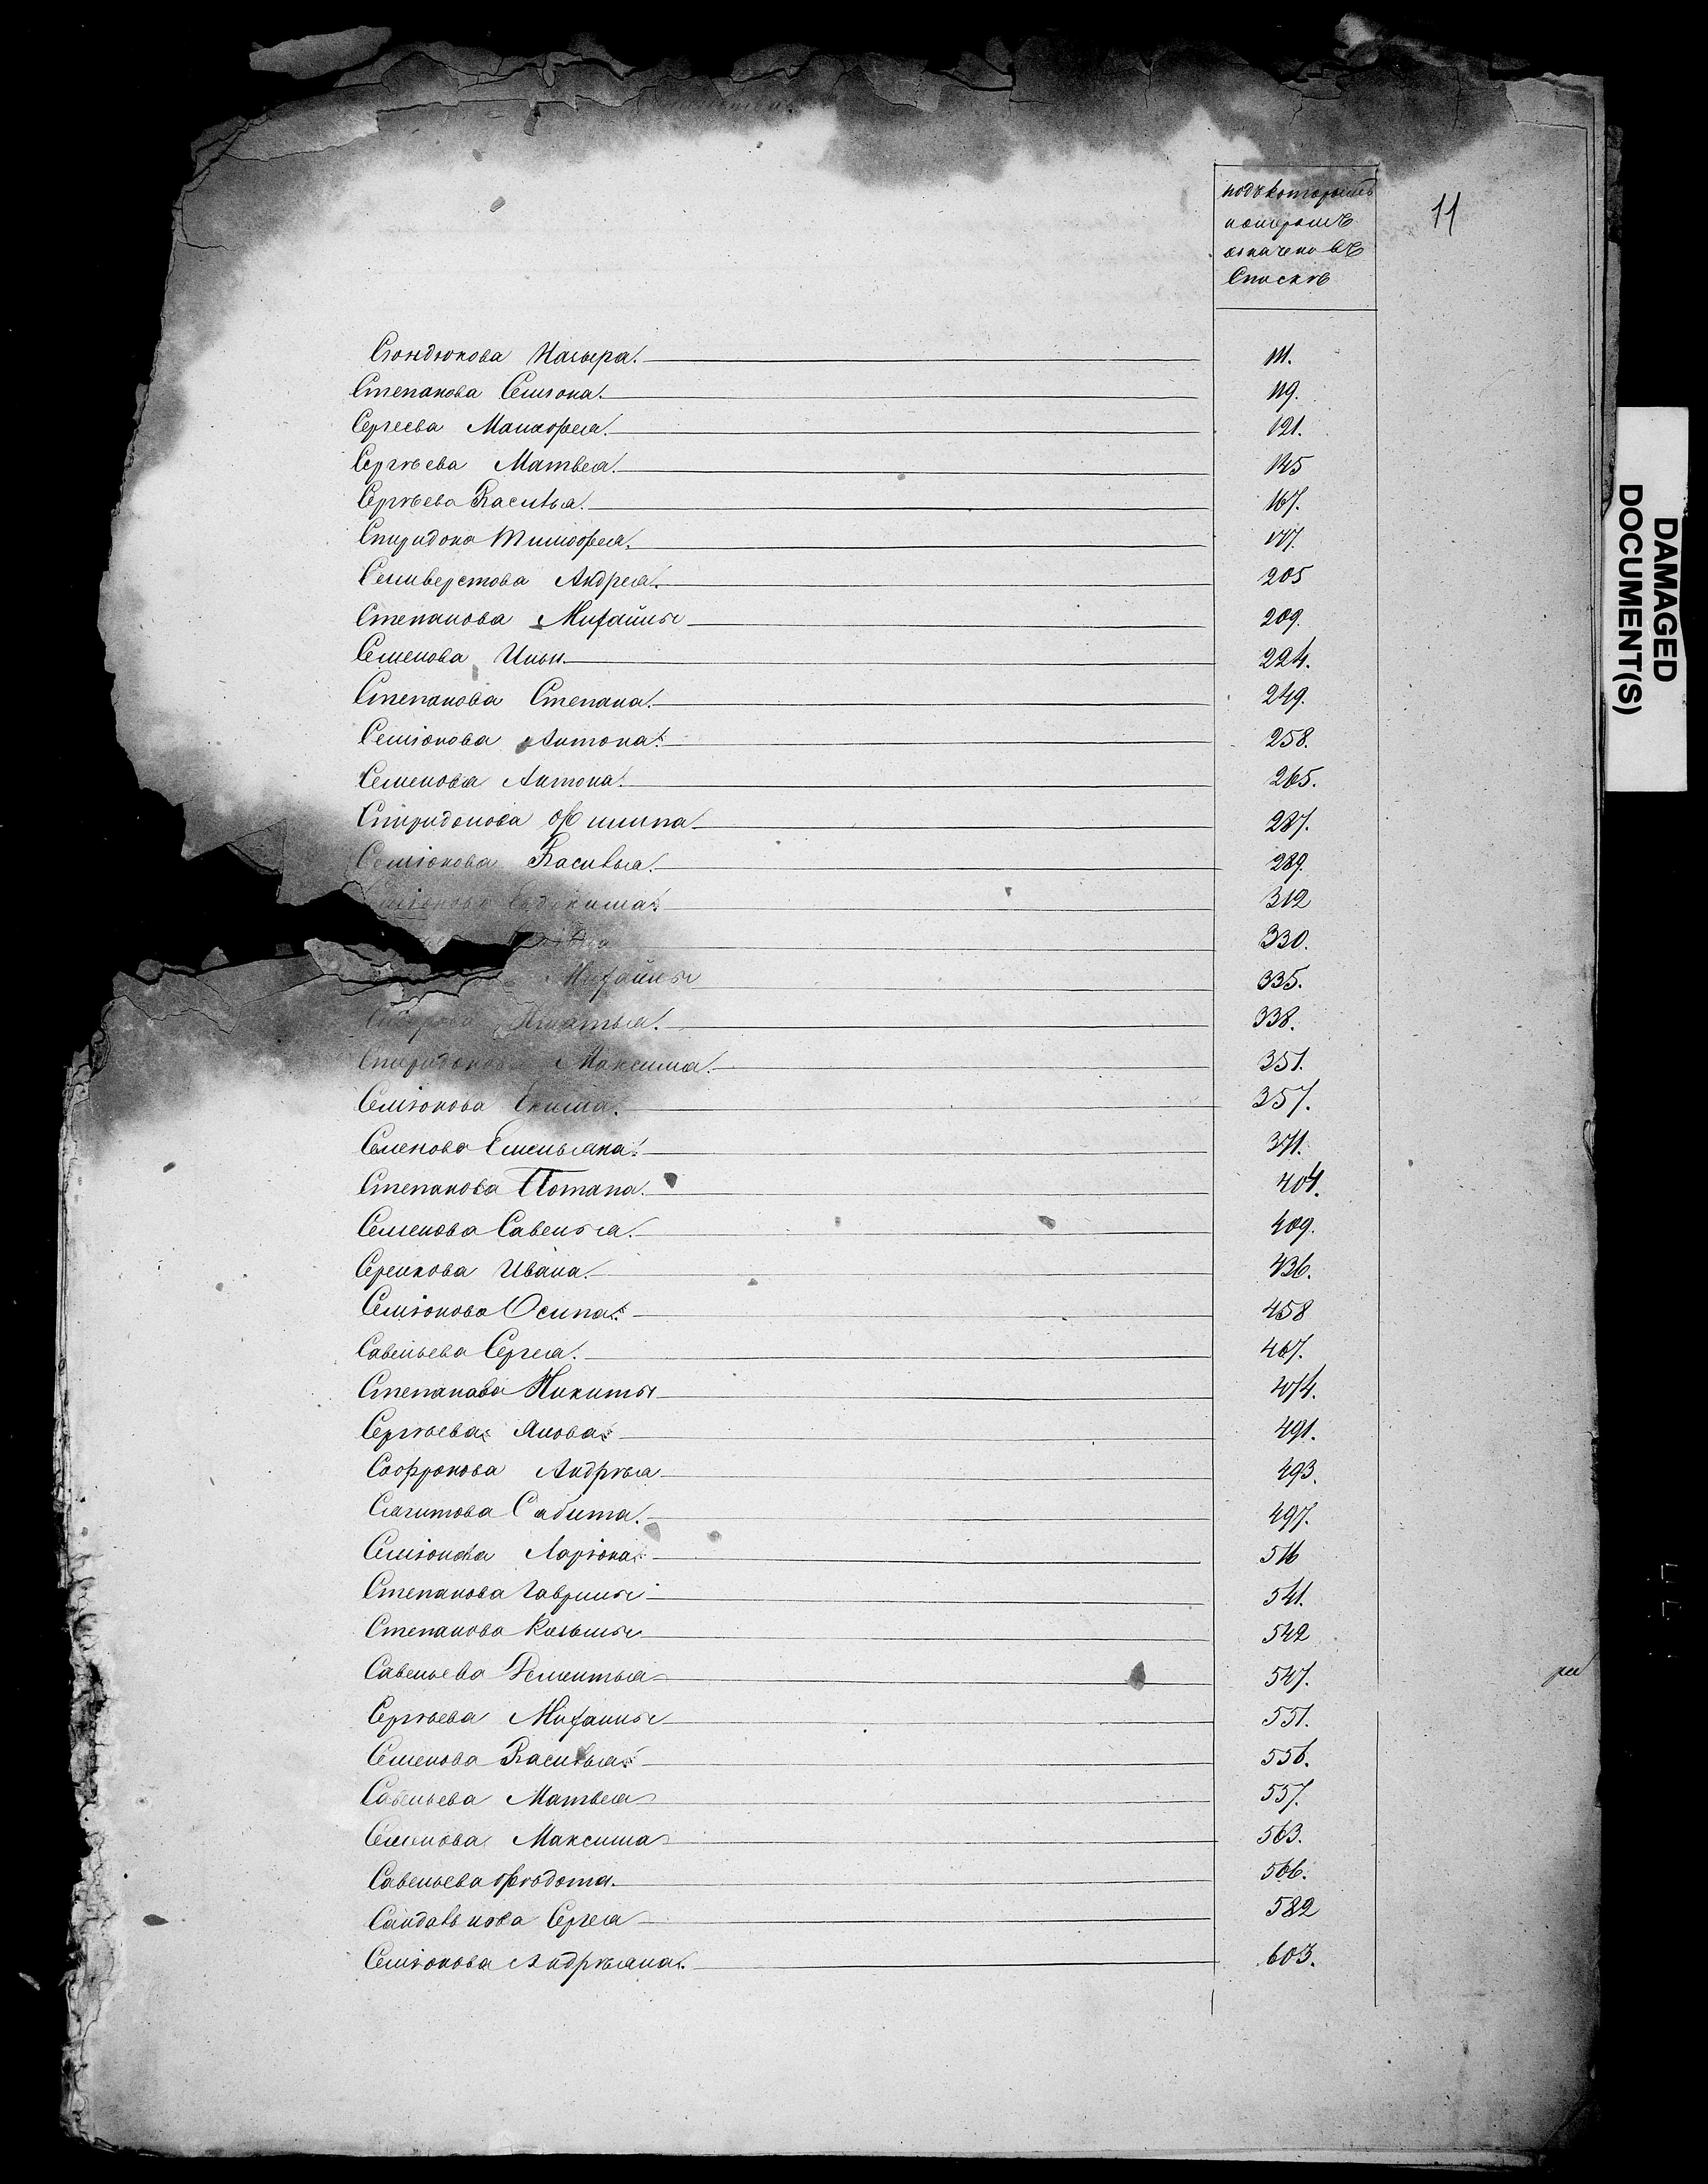 подъ которымъ
номеромъ
означено въ
Спискѣ
11
Сюндюкова Насыра. 111.
Степанова Семіона. 119.
Сергеева Никофрея. 121.
Сергѣева Матвея. 145
Сергѣева Василья. 167.
Спиридона Тимофея. 177.
Селиверстова Андрея. 205
Степанова Михайлы 209.
Семенова Ильи 224.
Степанова Степана. 249.
Семіонова Антона. 258.
Семенова Антона. 265.
Спиридонова Филипа 287.
Семіонова Василья. 289.
Семіонова Евдокима 312
330.
Михайлы 335.
Игнатья. 338.
Спиридонова Максима. 351.
Семіонова Екима. 357.
Семенова Емельяна. 371.
Степанова Потапа. 404.
Семенова Савелья. 409.
Ивана. 436.
Семіонова Осипа. 458
Савельева Сергея. 467.
Степанова Никиты 474.
Сергѣева Якова 491.
Софронова Андрѣя 493.
Сагитова Сабита. 497.
Семіонова Ларіона 516
Степанова Гаврилы 541.
Степанова Козьмы 542
Савельева Дементья 547.
Сергѣева Михайлы 551.
Семенова Василья 556.
Савельева Матвея 557.
Семенова Максима 563.
Савельева Фѣдота. 566.
Сергея 582
Семіонова Андрѣяна. 603.
DAMAGED
DOCUMENT(S)